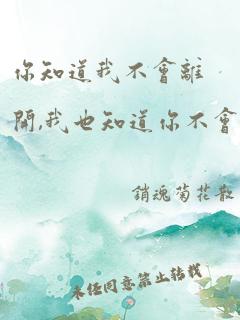 你知道我不會離
開,我也知道你不會
銷魂菊花散
未經同意禁止轉載